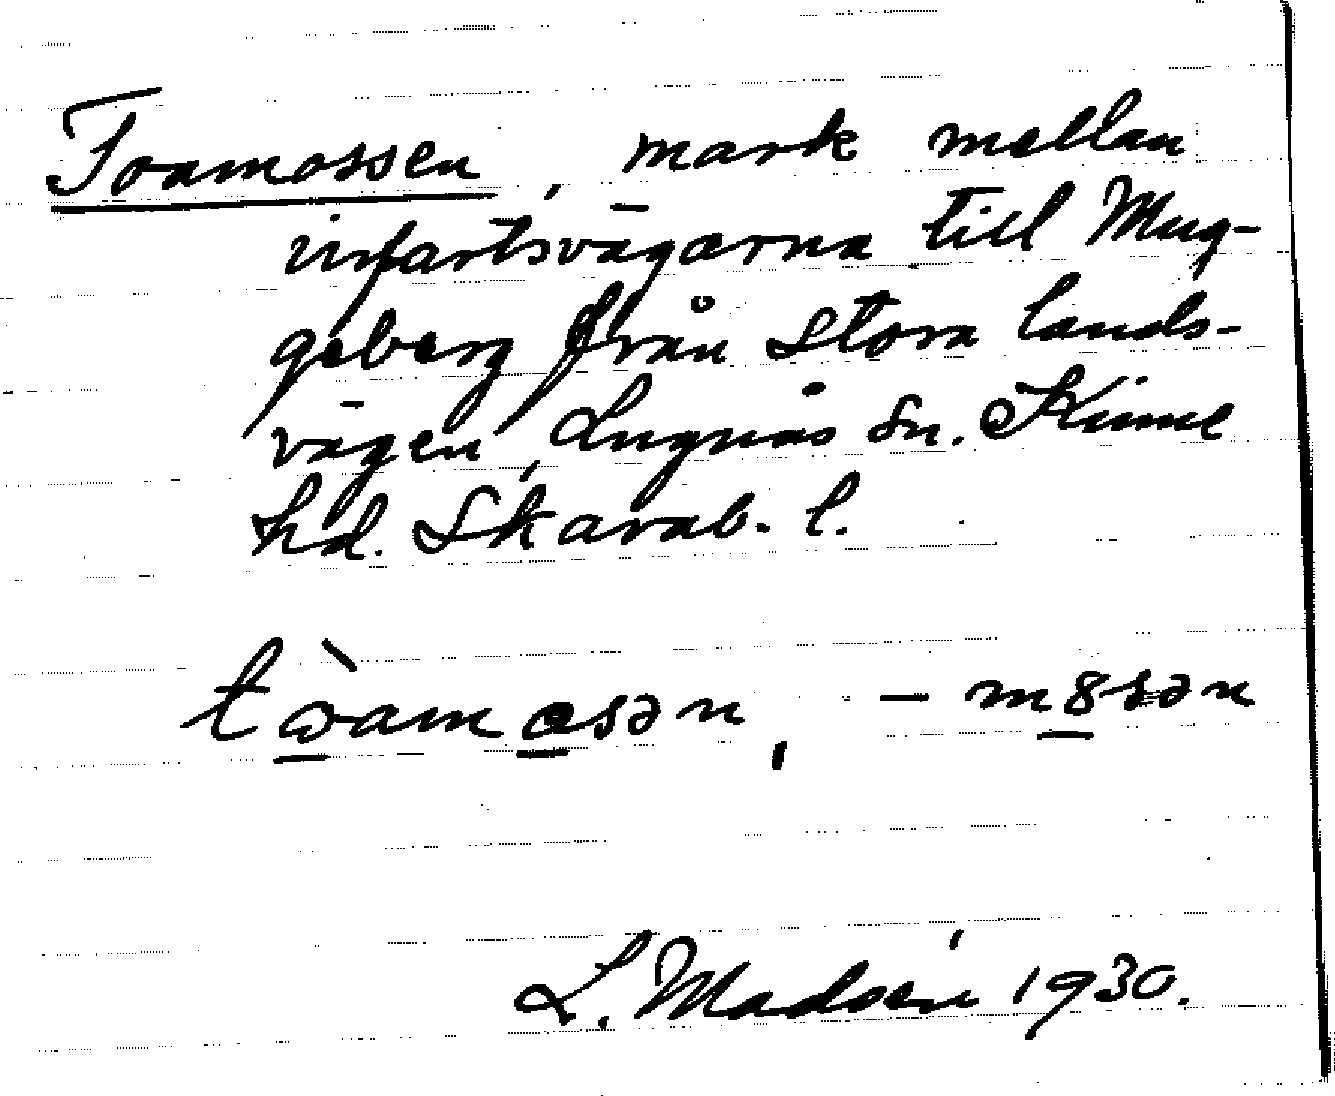 Toamossen, mark mellan
infartsvägarna till Mug-
geberg från stora lands-
vägen, Lugnås sn. Kinne
hd. Skarab. l.
tòamosən, - mɞsən
L. Madsén 1930.